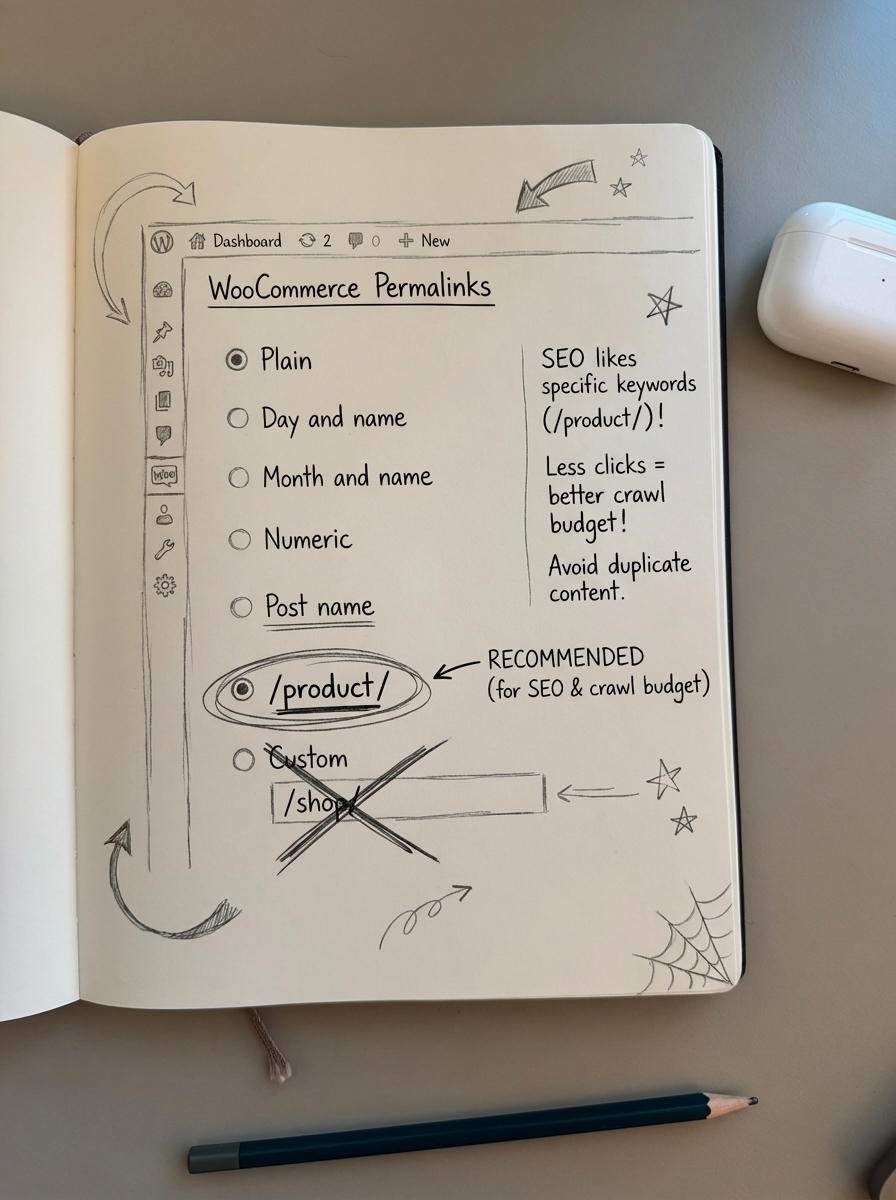 Dashboard 2 0 New
WooCommerce Permalinks
Plain
Day and name
Month and name
Numeric
Post name
/product/
Custom
/shop/
SEO likes
specific keywords
(/product/)!
Less clicks =
better crawl
budget!
Avoid duplicate
content.
RECOMMENDED
(for SEO & crawl budget)
Woo